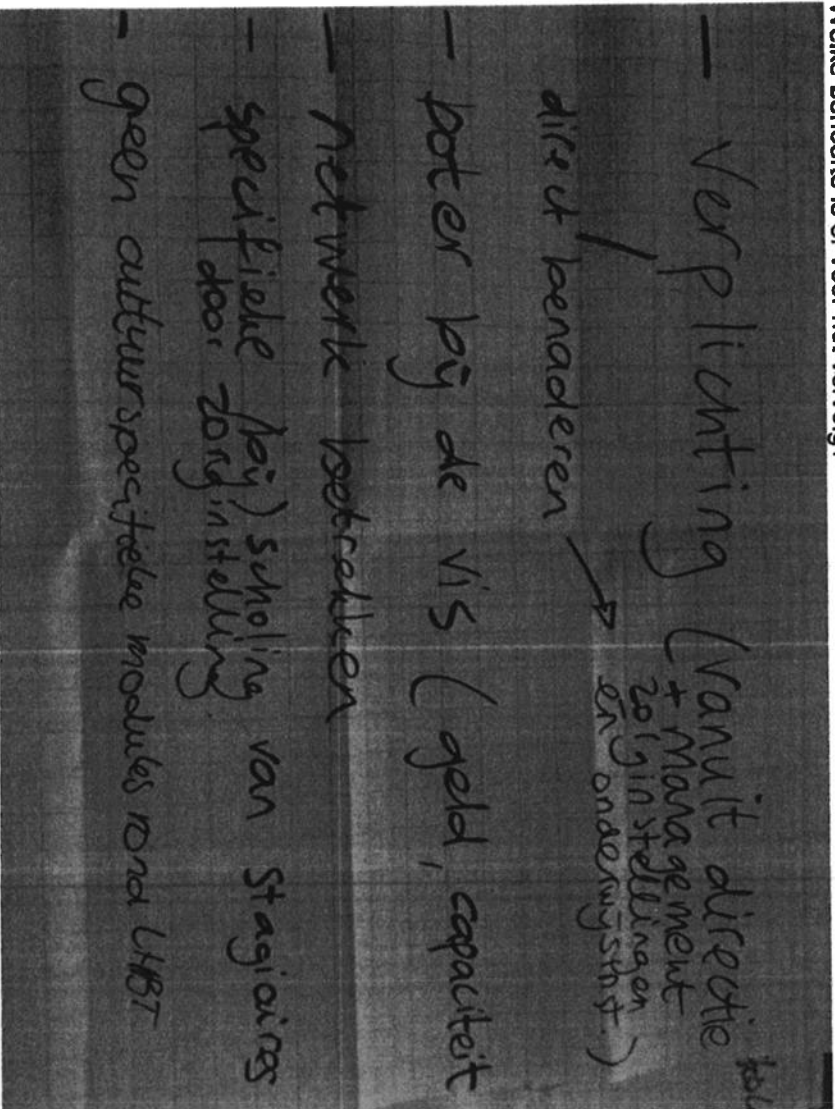 Welke behoefte is er voor het vervolg?
- Verplichting (vanuit directie
+ management
zorginstellingen
en onderwijsinst.)
direct benaderen
- boter bij de vis (geld, capaciteit
- netwerk betrekken
- specifieke (bij)scholing van stagiaires
door zorginstelling.
- geen cultuurspecifieke modules rond LHBT